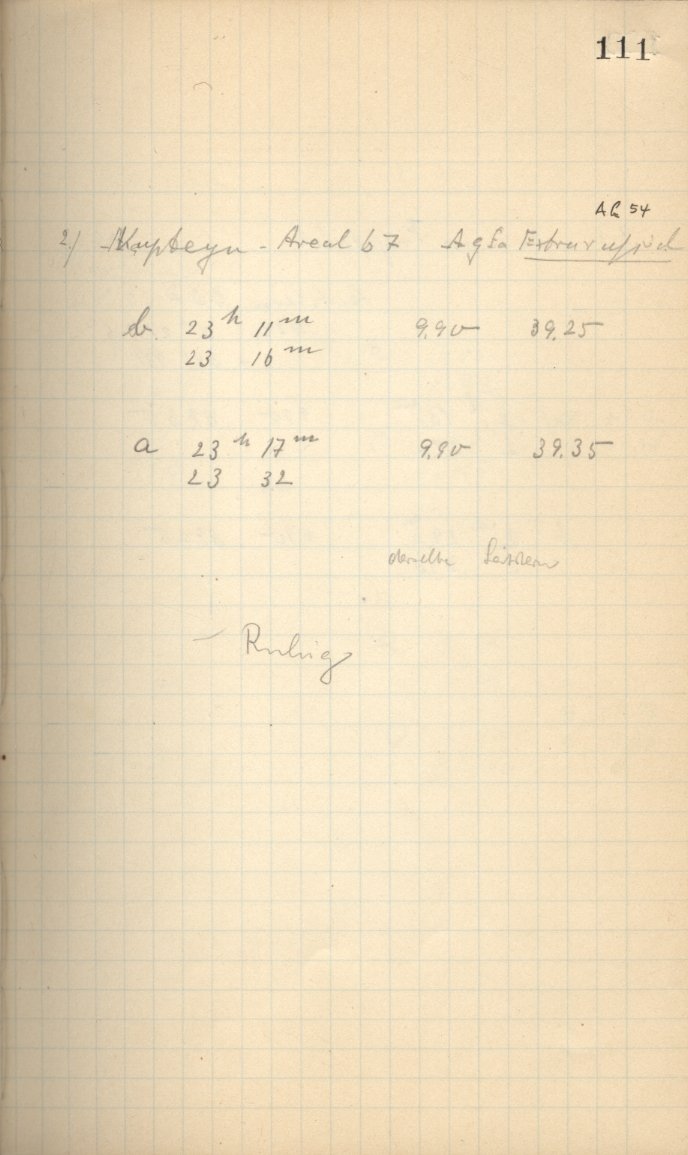 111
2.) Kapteyn - Areal 67 Agfa Extrarapid
b. 23h 11m 9.90 39.25
23 16m
a 23h 17m 9.90 39.35
23 32
derselbe
- Ruhig